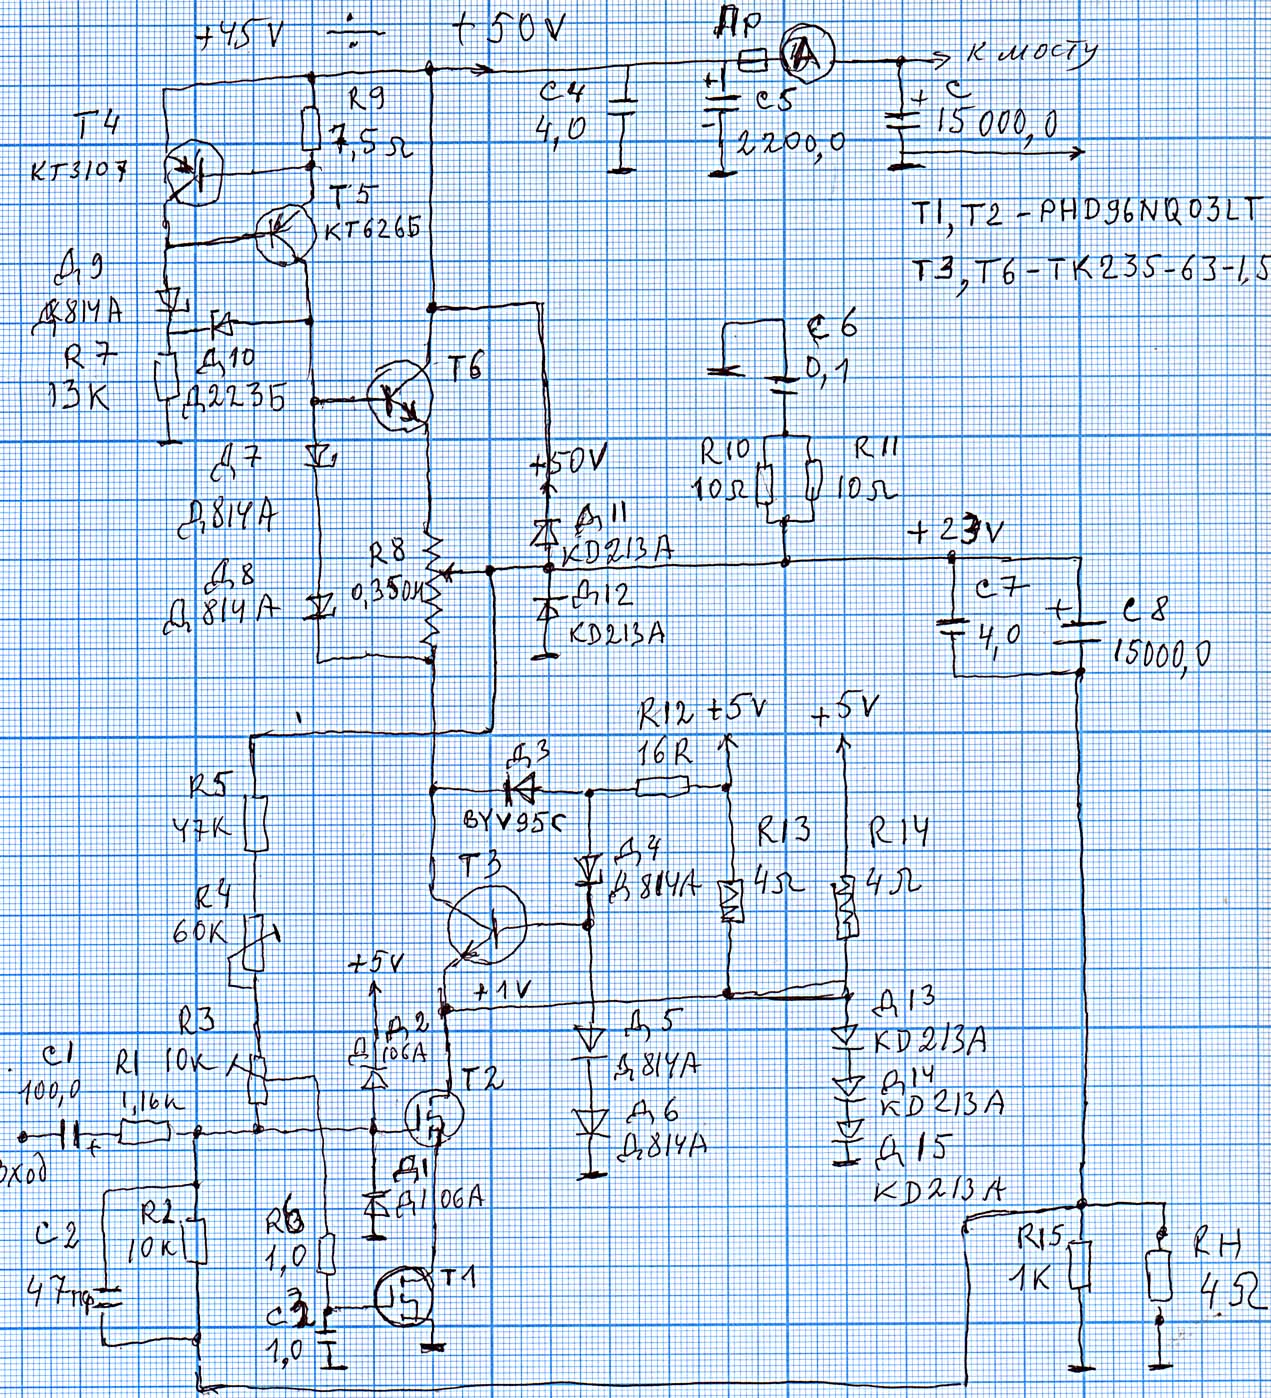 +45V ÷ +50V
Пр
A
К мосту
T4
КТ3107
R9
7,5Ω
C4
4,0
+
C5
2200,0
+ C
15000,0
T5
КТ6265
T1, T2 - PHD96NQ03LT
T3, T6 - TK235-63-1,5
Д9
Д814А
R7
13K
Д10
Д223Б
T6
C6
0,1
Д7
Д814А
+50V
R10
10Ω
R11
10Ω
Д11
KD213A
+23V
R8
Д8
Д814А
Д12
KD213A
C7
4,0
+
C8
15000,0
R12
16R
+5V
+5V
R5
47K
Д3
BYV95C
R13
4Ω
R14
4Ω
T3
Д4
Д814А
R4
60K
+5V
+1V
Д2
Д106А
R3
10K
C1
100,0
R1
1,16K
+
T2
Д5
Д814А
Д13
KD213A
Д14
KD213A
Д6
Д814А
Д15
KD213A
Вход
Д1
Д106А
C2
47пф
R2
10K
R6
1,0
T1
C3
1,0
R15
1K
RН
4Ω